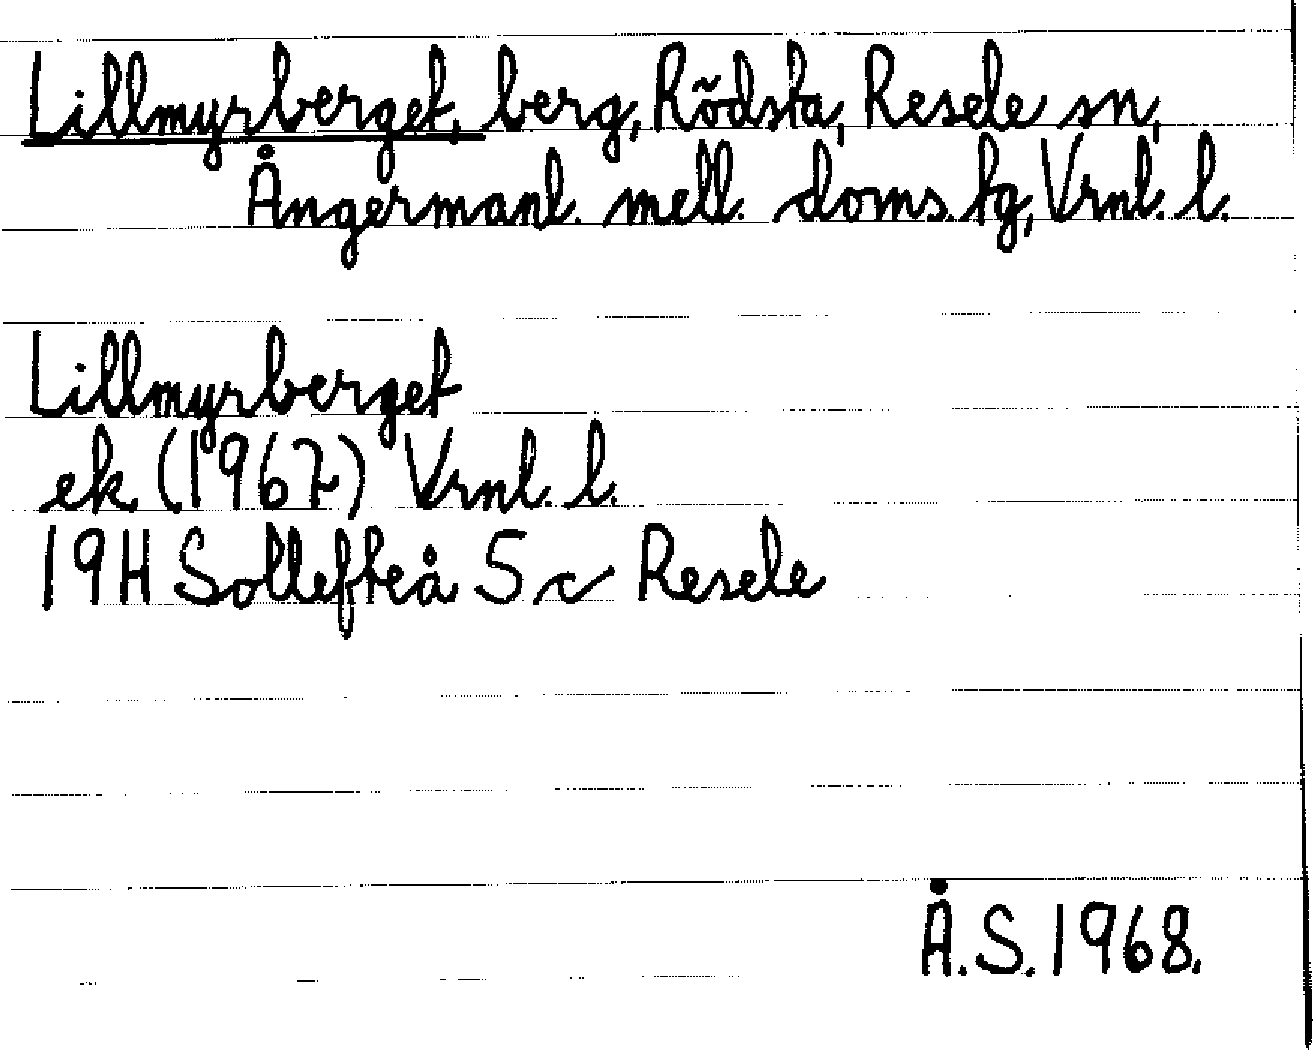 Lillmyrberget, berg, Rödsta, Resele sn,
Ångermanl. mell. doms. fg, Vrnl. l.
Lillmyrberget
ek (1967) Vrnl. l.
19H Sollefteå 5 c Resele
Å.S. 1968.